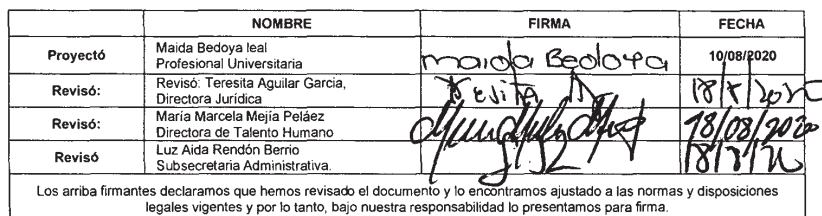 NOMBRE FIRMA FECHA
Proyectó Maida Bedoya leal
Profesional Universitaria maida Bedoya 10/08/2020
Revisó: Revisó: Teresita Aguilar Garcia,
Directora Jurídica
Revisó: María Marcela Mejía Peláez
Directora de Talento Humano 18/08/2020
Revisó Luz Aida Rendón Berrio
Subsecretaria Administrativa.
Los arriba firmantes declaramos que hemos revisado el documento y lo encontramos ajustado a las normas y disposiciones
legales vigentes y por lo tanto, bajo nuestra responsabilidad lo presentamos para firma.